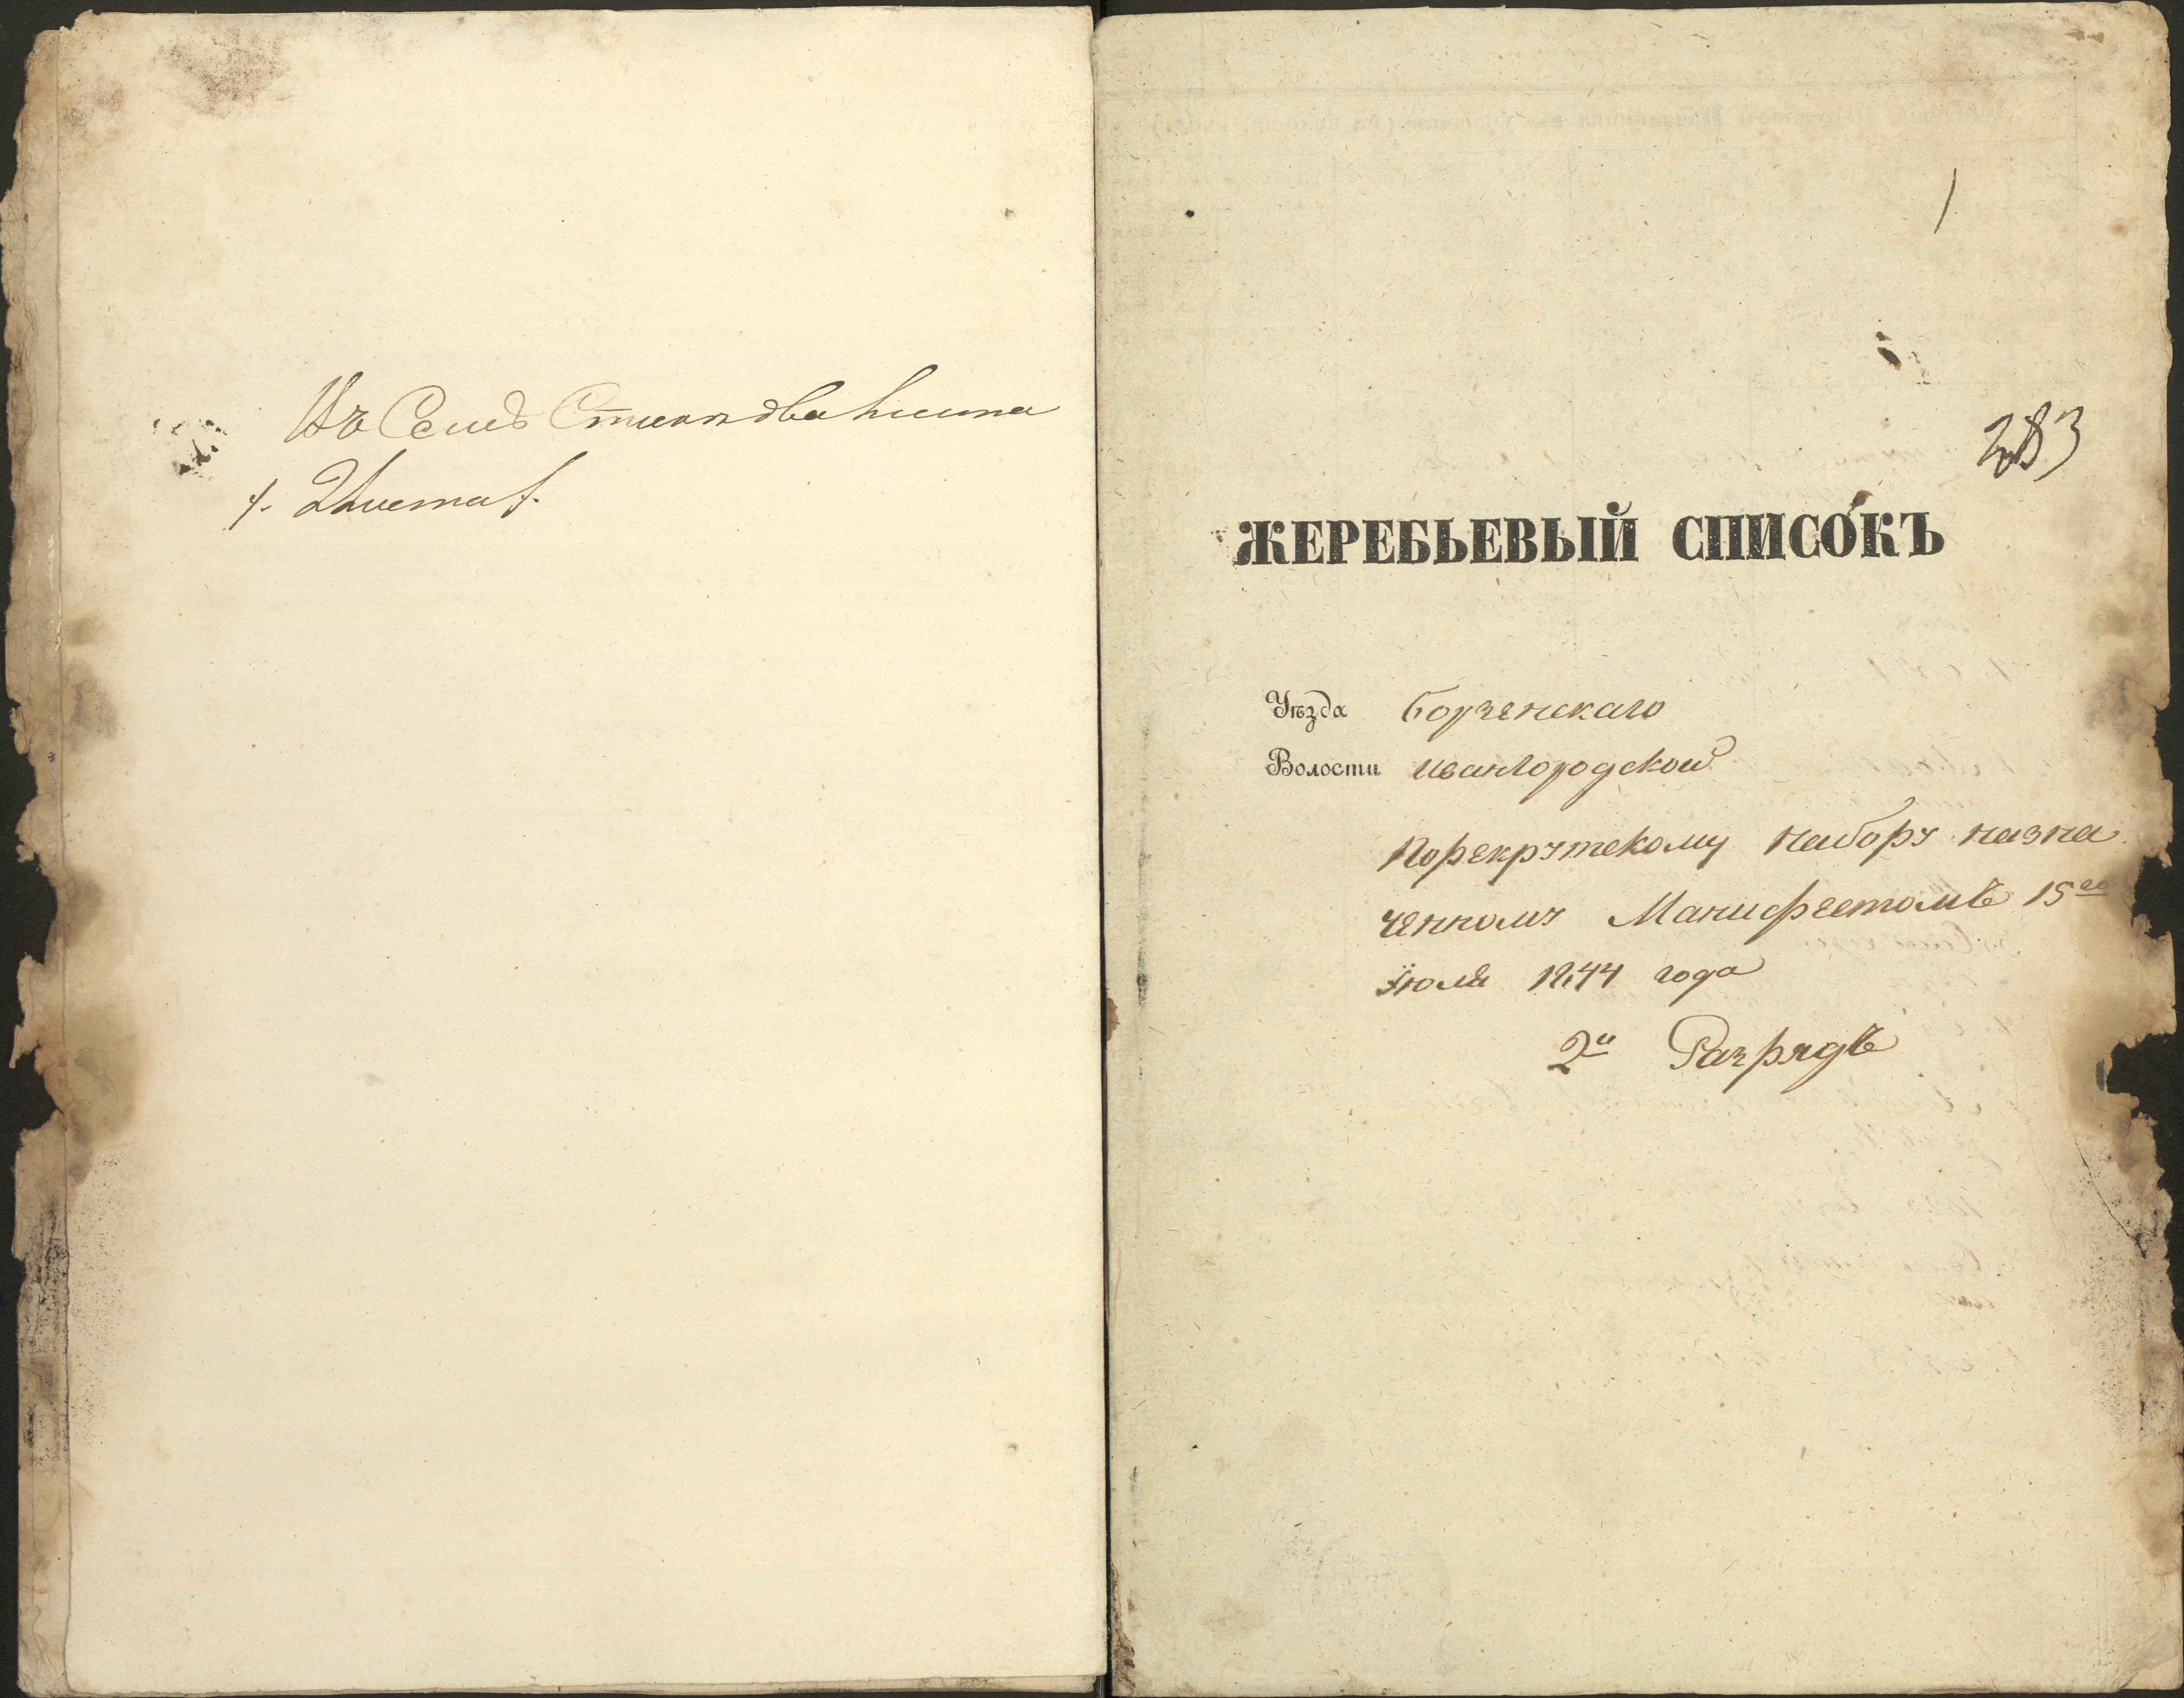 Въ Семъ
4. Листа
1
283
ЖЕРЕБЬЕВЫЙ СПИСОКЪ
Уѣзда борзенскаго
Волости ивангородской
Порекрутскому набору назна
ченному Манифестомъ 15го
Іюля 1844 года
2й Разрядъ